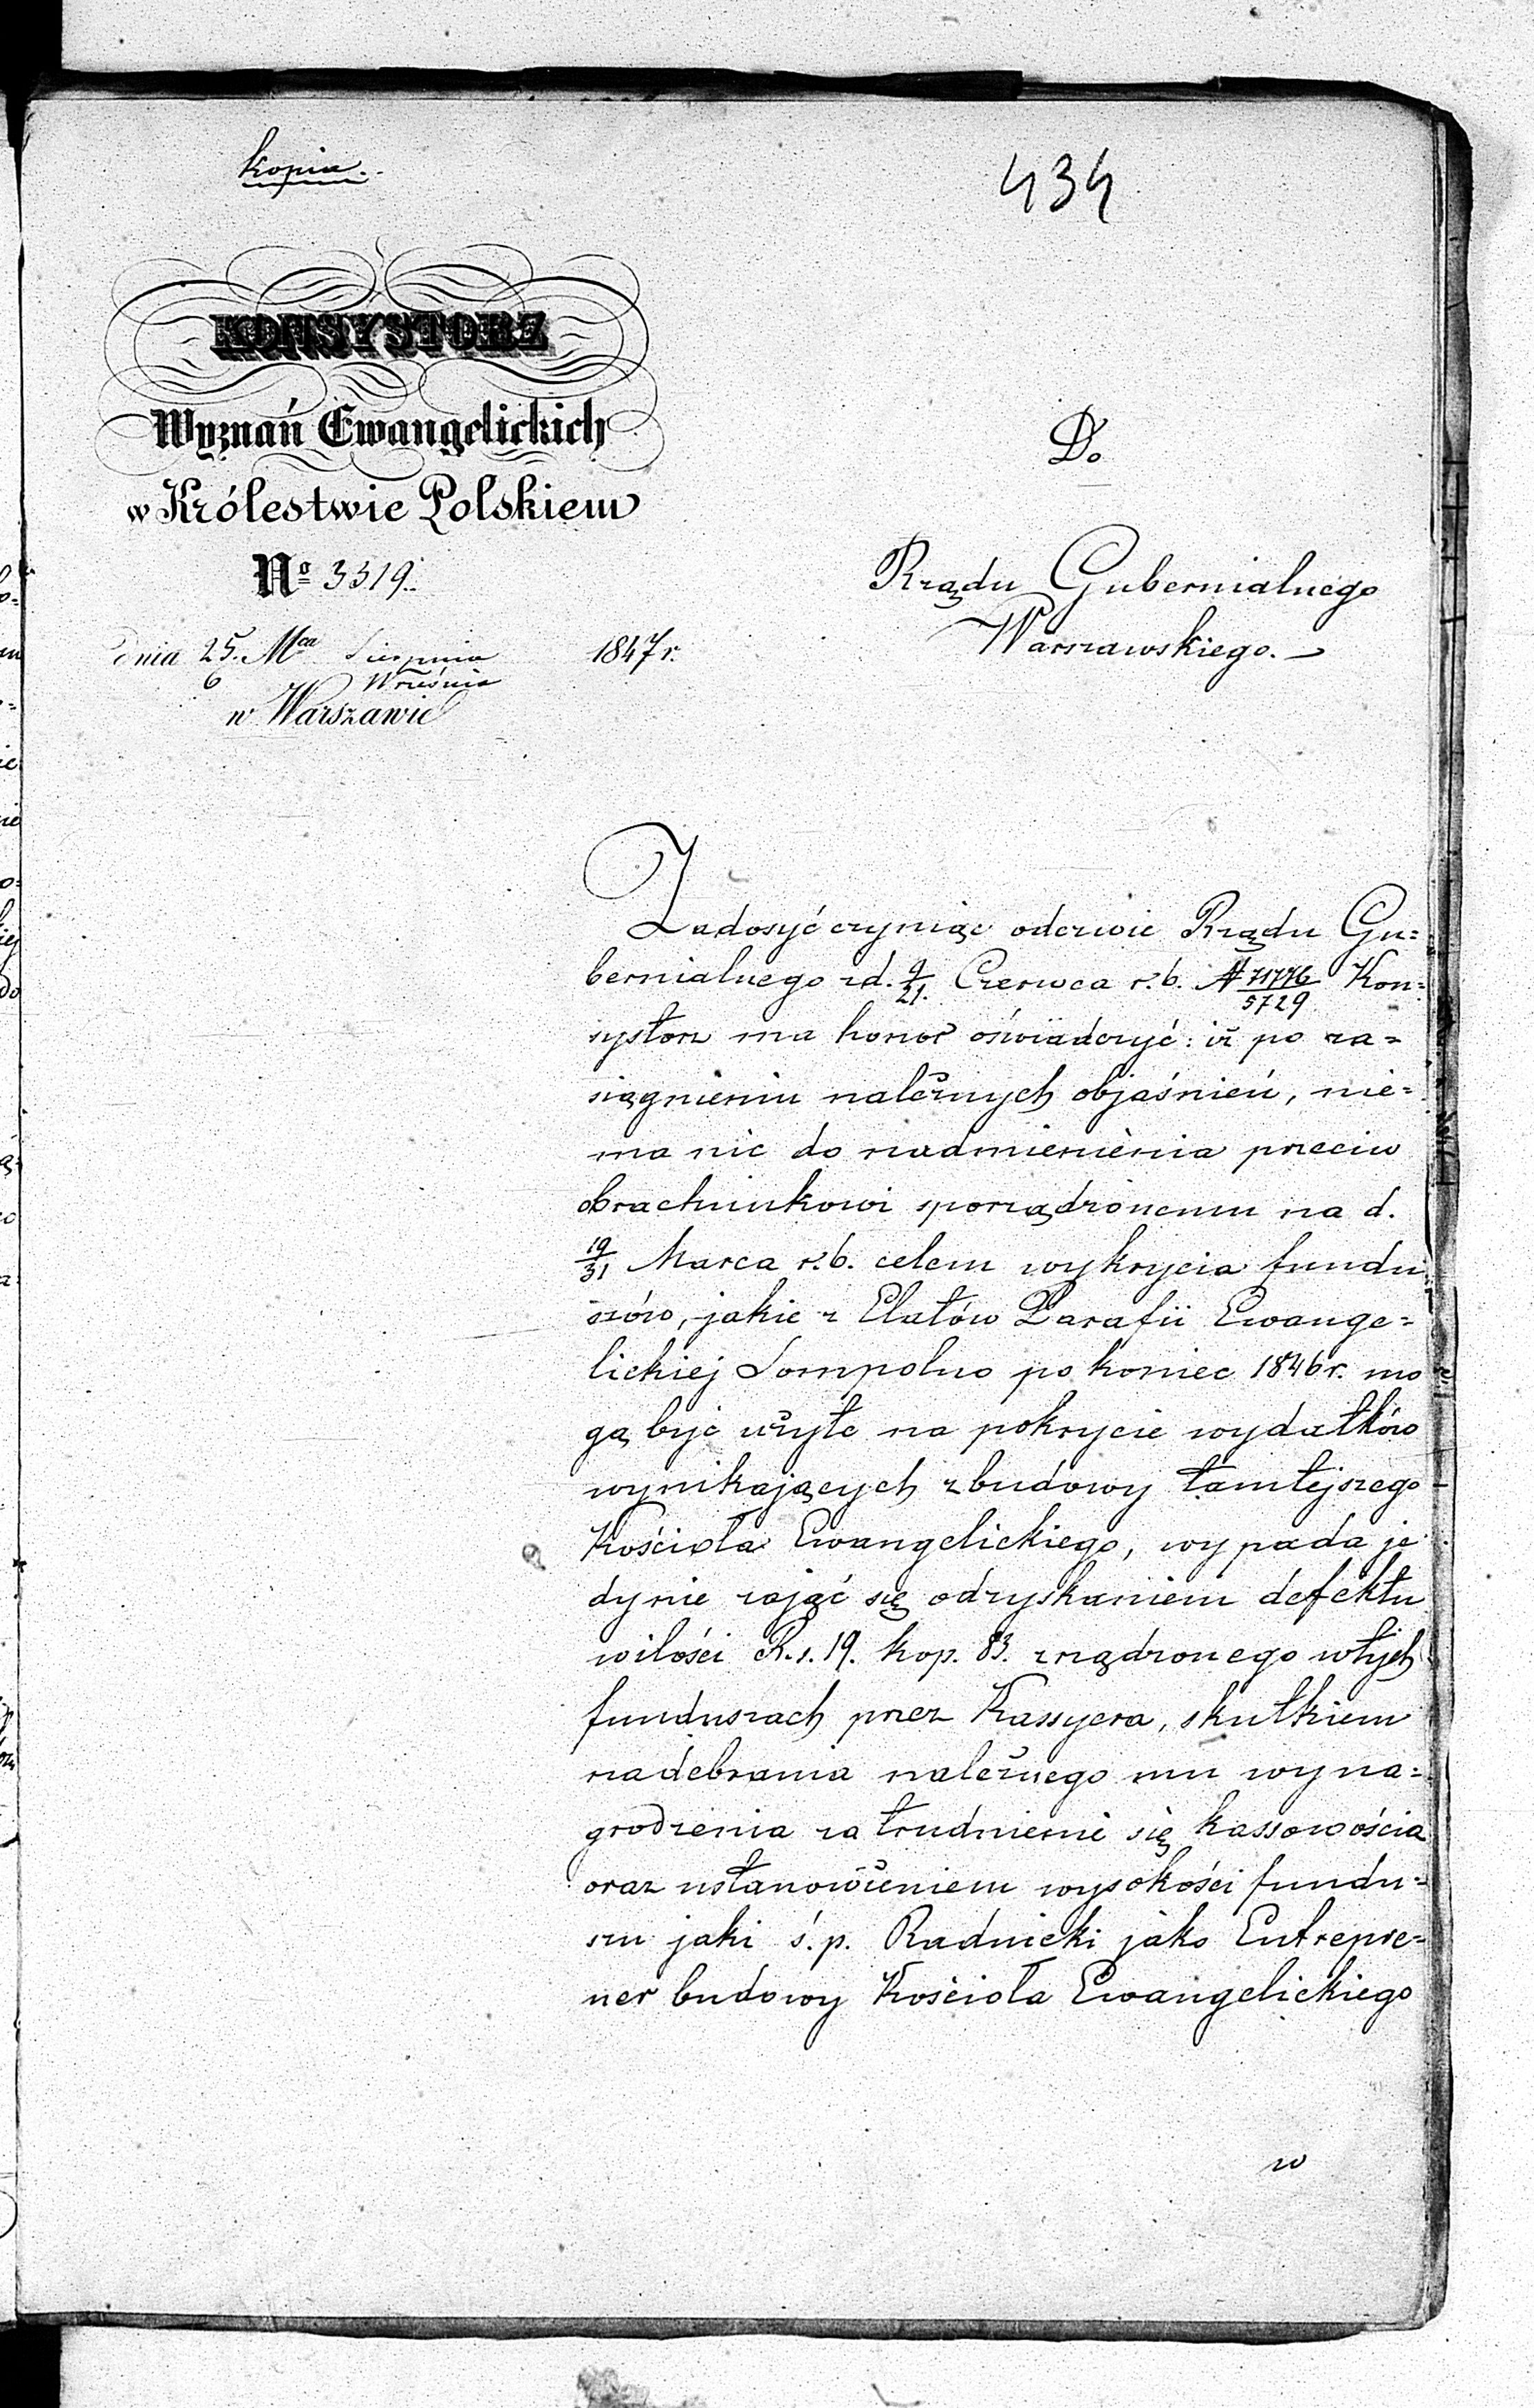 kopia.
434
KONSYSTORZ
Wyznań Ewangelickich
w Królestwie Polskiem
No 3319.
dnia 25. Mca Sierpnia 1847 r.
6 Września
w Warszawie
Do
Rządu Gubernialnego
Warszawskiego.
Zadosyć czyniąc odezwie Rządu Gu=
bernialnego z d. 9/21. Czerwca r. b. N 71776/5729 Kon=
systorz ma honor oświadczyć: iż po za=
siągnieniu należnych objaśnień, nie=
ma nic do nadmienienia przeciw
obrachunkowi sporządzonemu na d.
19/31 Marca r. b. celem wykrycia fundu
szów, jakie z Etatów Parafii Ewange=
lickiej Sompolno po koniec 1846 r. mo
gą być użyte na pokrycie wydatków
wynikających z budowy tamtejszego
Kościoła Ewangelickiego, wypada je
dynie zająć się odzyskaniem defektu
w ilości R. s. 19. kop. 83. zrządzonego w tych
funduszach przez Kassyera, skutkiem
nadebrania należnego mu wyna=
grodzenia za trudnienie się kassowością
oraz ustanowieniem wysokości fundu=
szu jaki ś. p. Radnicki jako Entrepre=
ner budowy Kościoła Ewangelickiego
w